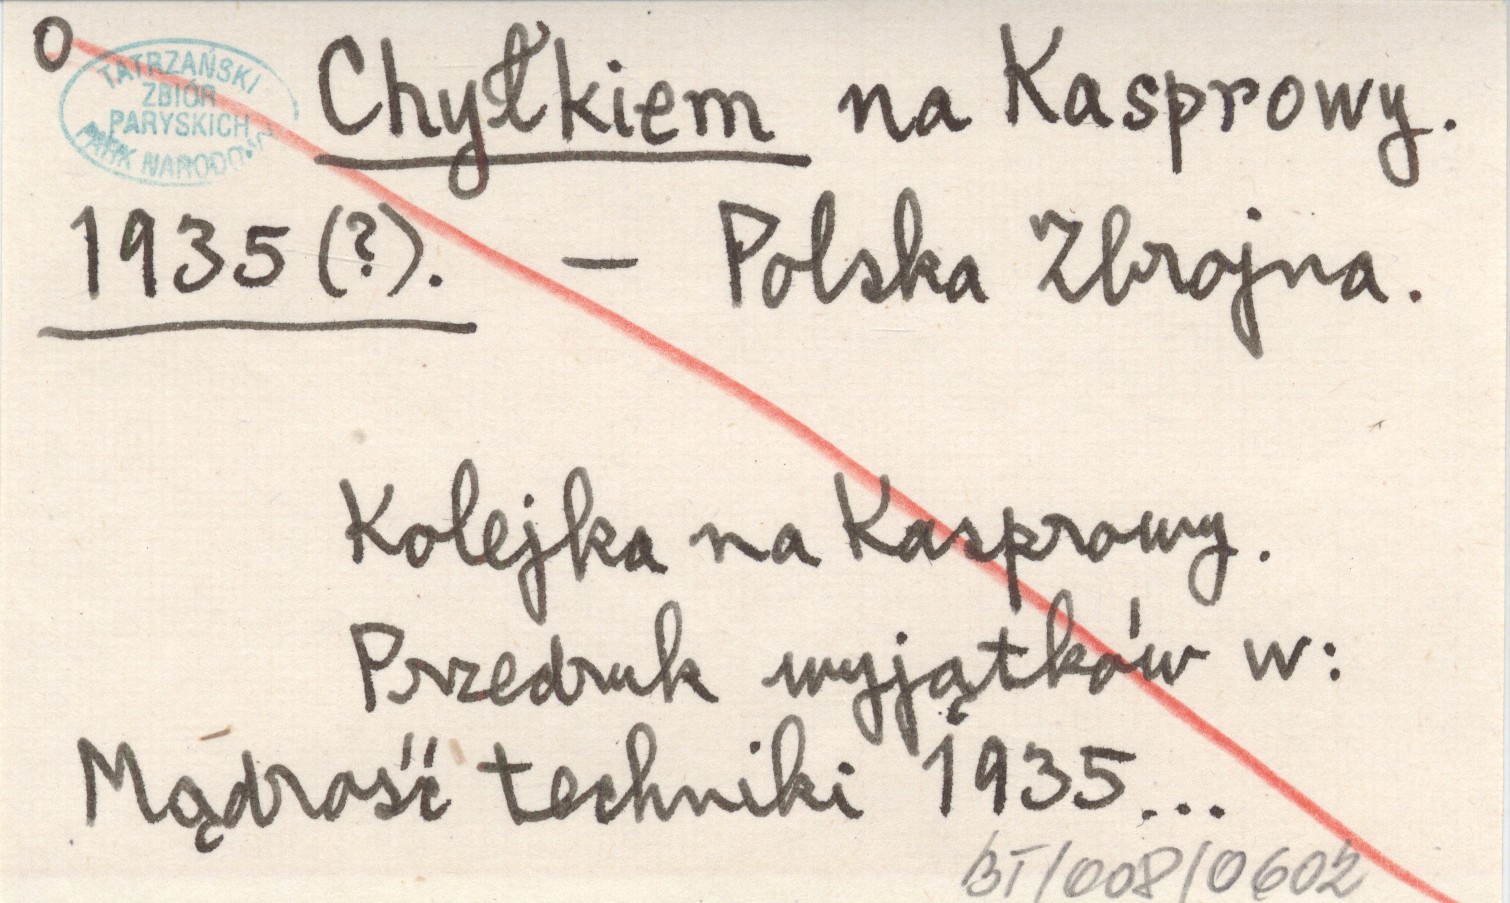 O
TATRZAŃSKI
ZBIÓR
PARYSKICH
PARK NARODOWY
Chyłkiem na Kasprowy.
1935 (?). — Polska Zbrojna.
Kolejka na Kasprowy.
Przedruk wyjątków w:
Mądrość techniki 1935...
BT/008/0602